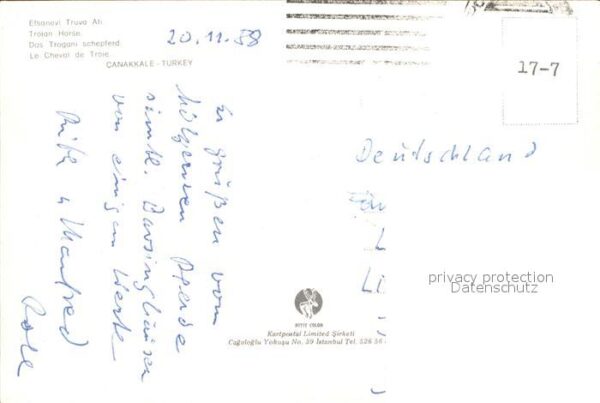 Efsanevi Truva Atı
Trojan Horse.
Das Trogani schepferd
Le Cheval de Troie
ÇANAKKALE - TURKEY
20.11.88
17-7
Es grüßen vom
hölzernen Pferde
sämtl.
von einigen
Manfred
Deutschland
privacy protection
Datenschutz
HITIT COLOR
Kartpostal Limited Şirketi
Cağaloğlu Yokuşu No. 39 İstanbul Tel. 526 56